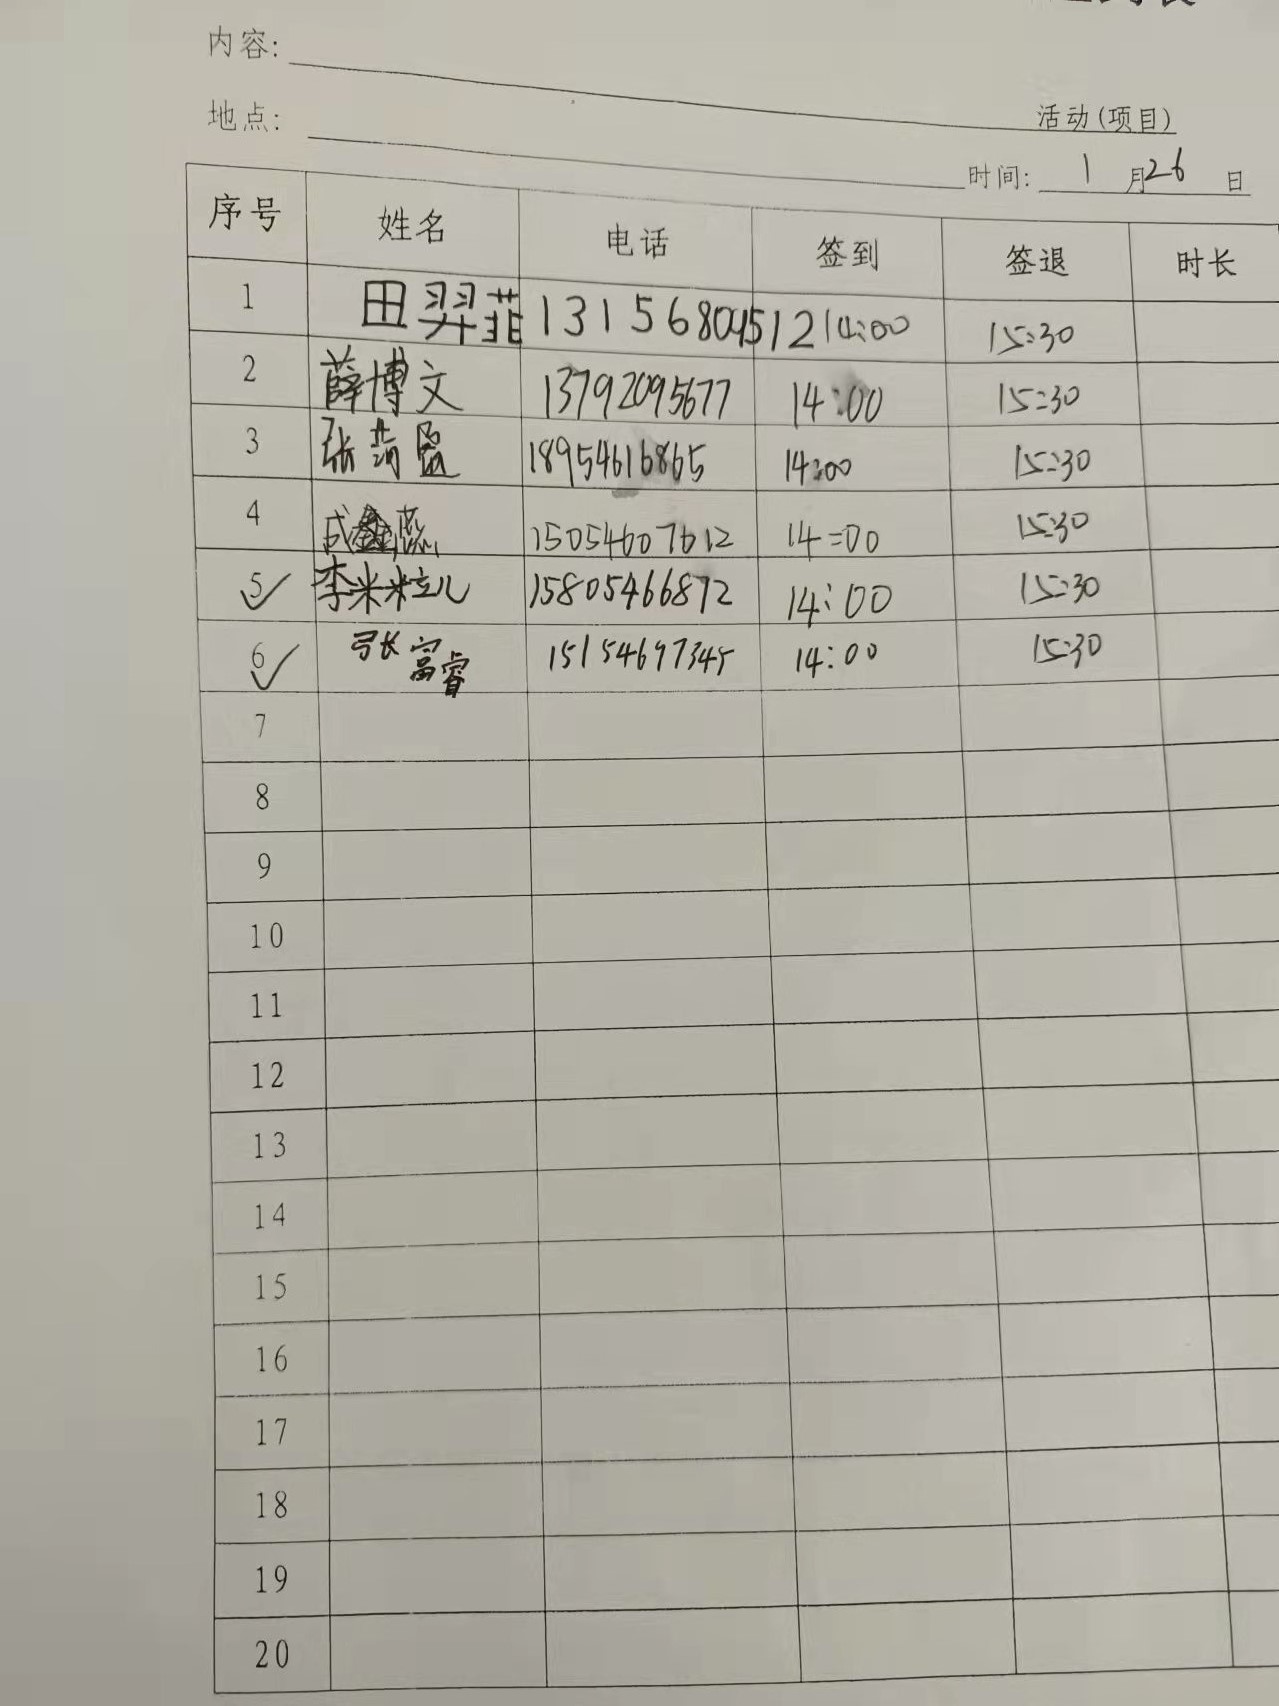 内容:
地点: 活动(项目)
时间: 1月26日
序号 姓名 电话 签到 签退 时长
1 田羿菲 13156809512 14:00 15:30
2 薛博文 13792095677 14:00 15:30
3 张 18954616865 14:00 15:30
4 成鑫蕊 15054607612 14=00 15:30
5 李米粒儿 15805466872 14:00 15:30
6 张富睿 15154697345 14:00 15:30
7
8
9
10
11
12
13
14
15
16
17
18
19
20